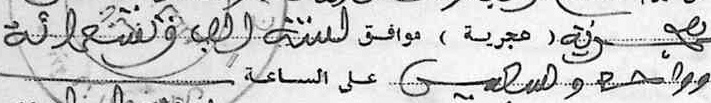 ( هجرية ) موافق لسنة الف وتسعمائة
وواحد وستين على الساعة